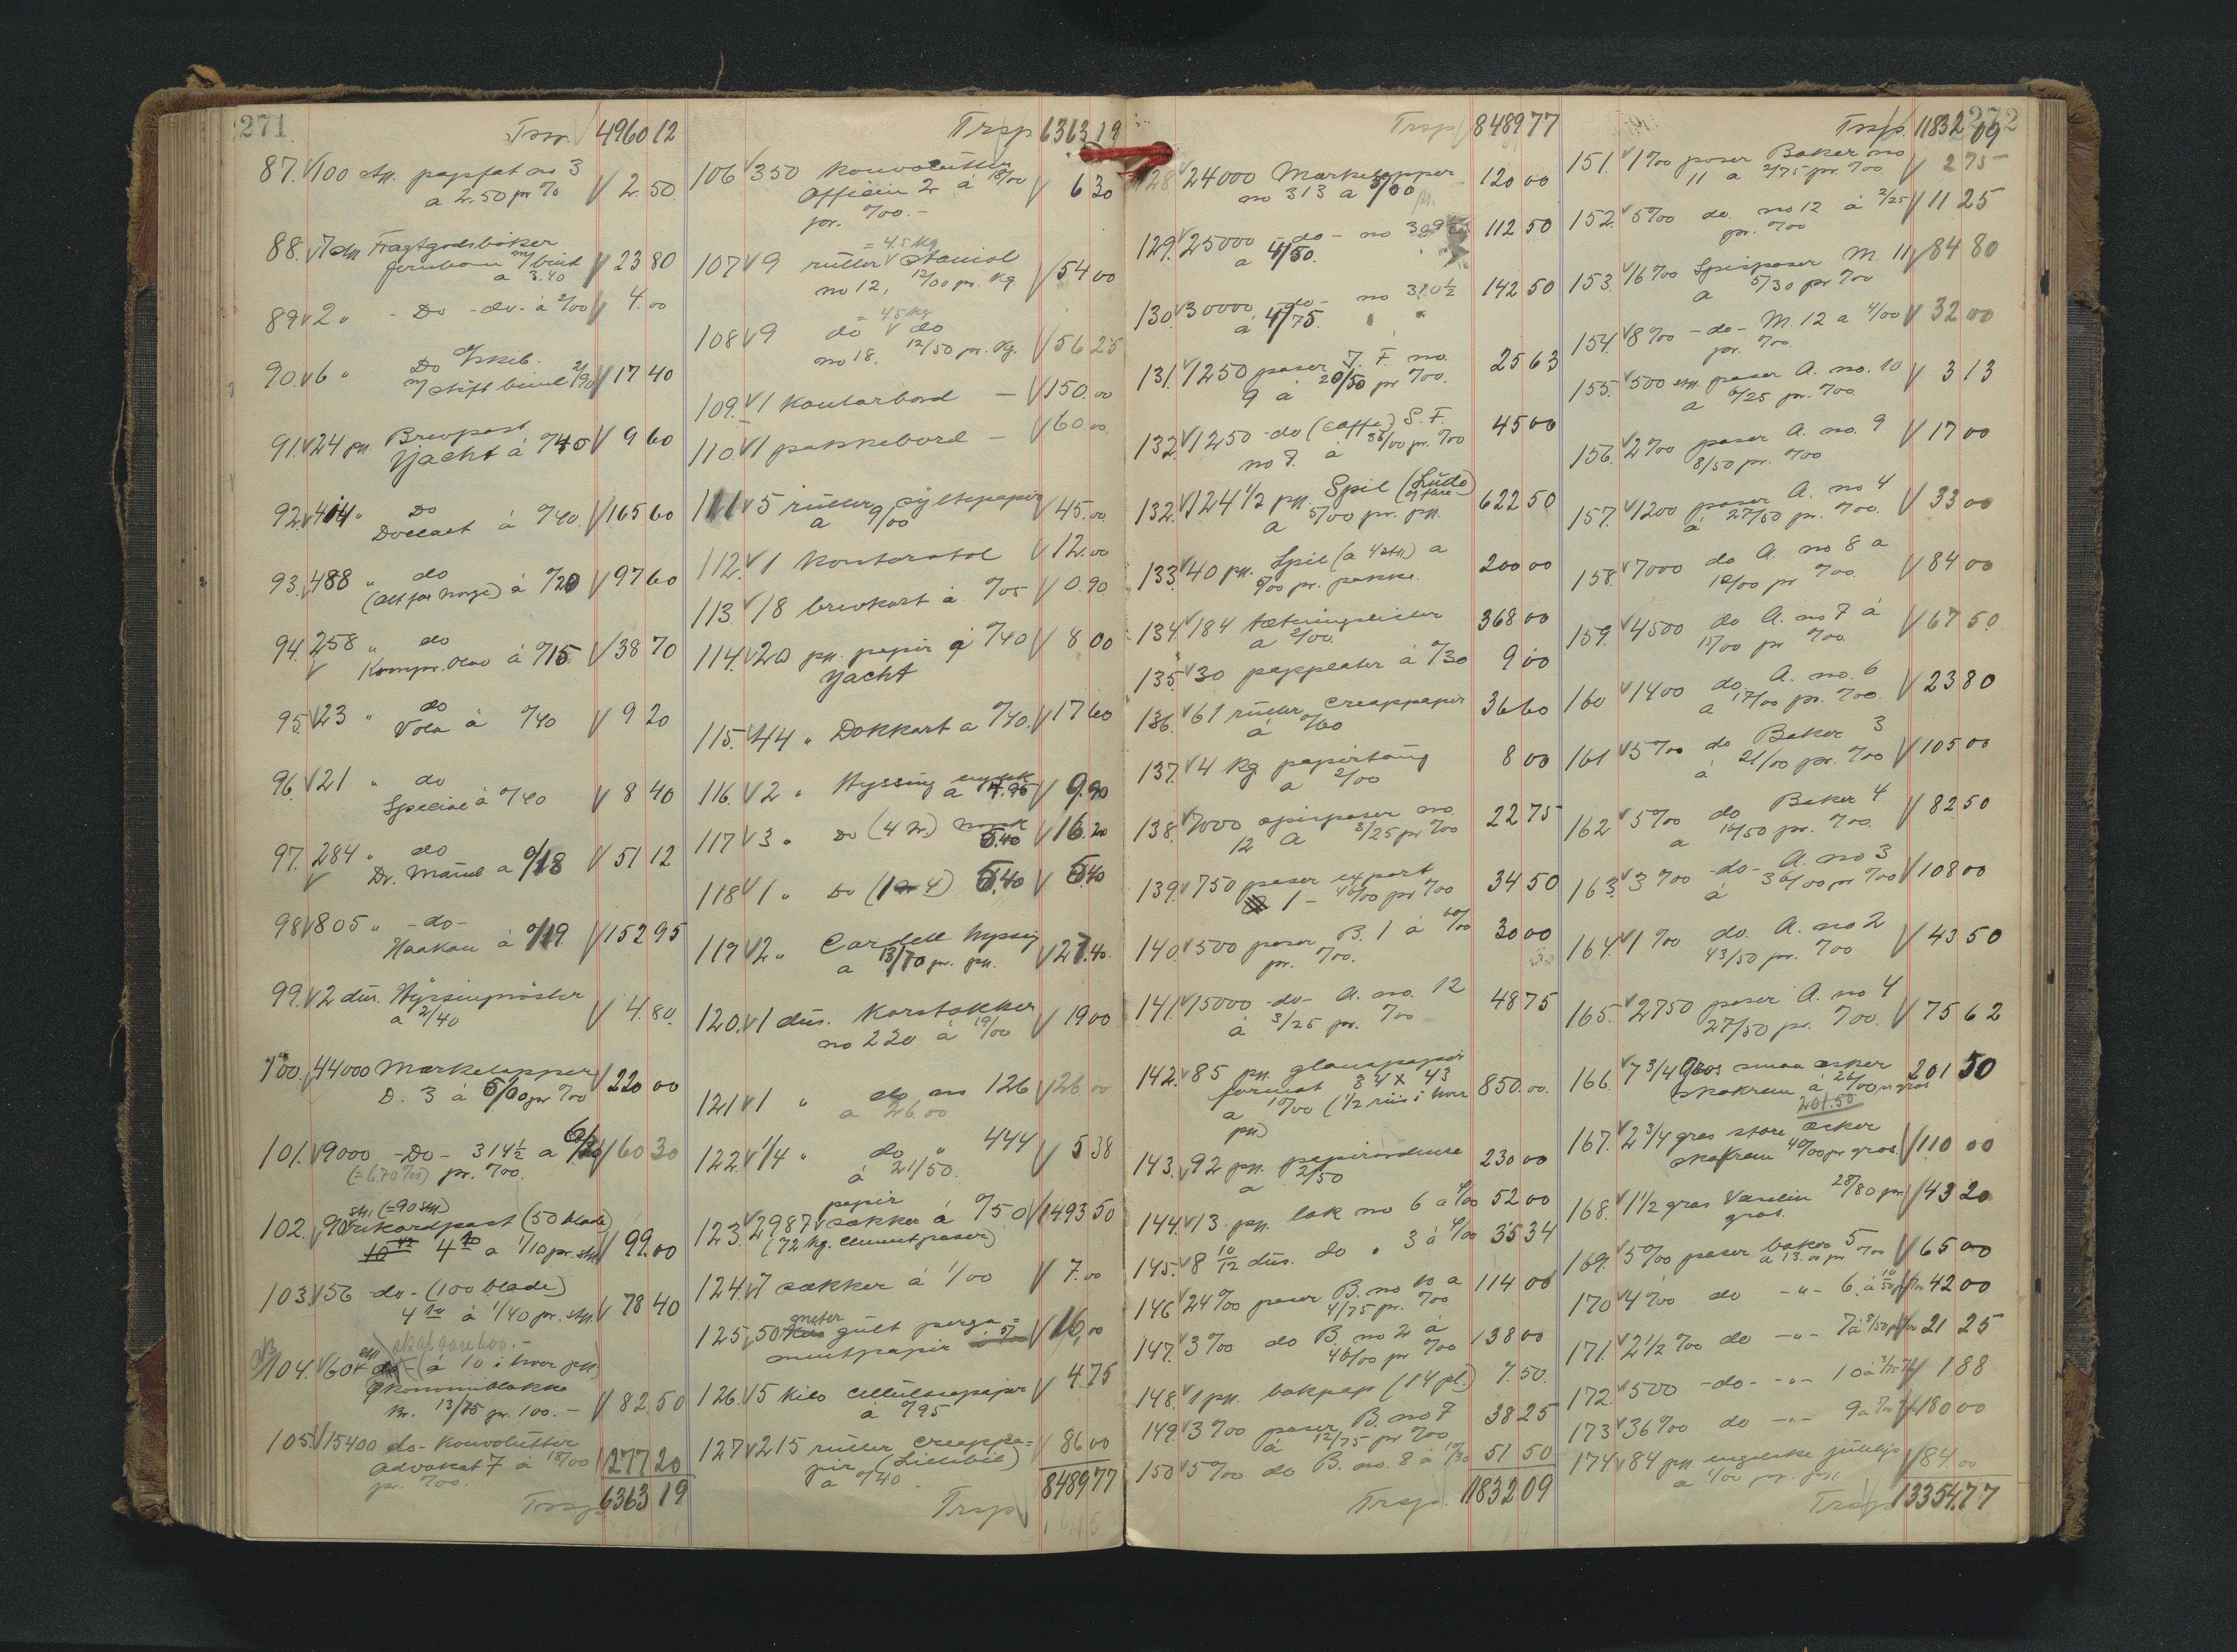 271
Trsp. 4960 12
87. 100 stk. papfat no 3
a 2.50 pr % 2.50
88. 7 stk Fragtgodsbøker
Jernbane m/ bind
a 3.40 23 80
89 2 " - Do - do - à 2/00 4.00
90. 6 " Do o/skib.
m/ stift bind 2/90 17 40
91. 24 pk. Brevpost
Yacht à 0/40 9 60
92. 414 " Do
Dollart à 0/40. 165 60
93. 488 " do
(Alt for Norge) à 0/20 97 60
94. 258 " do
Kompr. Olav à 0/15 38 70
95. 23 " do
Vola à 0/40 9 20
96. 21 " do
Special à 0/40 8 40
97. 284 " do
Dr. Maud a 0/18 51 12
98 805 " - do -
Haakon à 0/19. 152 95
99. 2 dus. Hyssingnøster
a 2/40 4.80.
100. 44000 Merkelapper
D. 3 à 5/00 pr 0/00 220 00
101. 9000 - Do - 314½ a 6/70 60 30
(= 6.70 0/00) pr. 0/00.
102. 90 stk. (=90 stk)
rekordpost (50 blade)
4to a 1/10 pr. stk 99.00
103. 56 - do - (100 blade)
4to à 1/40 pr. stk. 78 40
skal være 600. -
104. 60 stk do - (à 10 i hver pk)
Økonomiblokke
Kr. 13/75 pr. 100. - 82.50
105. 15400 do - Konvolutter
Advokat 7 à 18/00
pr. 0/00. 277 20
Trsp 6363 19
Trsp 6363 19
106 350 Konvolutter
Officin 2 à 18/00
pr. 0/00. - 6 30
= 4.5 kg
107 9 ruller Staniol
no 12, 12/00 pr. kg. 54 00
= 4.5 kg
108 9 do do
no 18. 12/50 pr. kg. 56 25
109. 1 Kontorbord - 150.00
110. 1 pakkebord - 60.00.
111 5 ruller syltepapir
a 9/00 45.00
112. 1 Kontorstol 12.00
113. 18 brevkort à 0/05 0.90
114. 20 pk. papir à 0/40 8 00
Yacht
115. 44 " Dokkart a 0/40. 17 60
116. 2 " Hyssing engelsk
a 4.95 9.90
117 3 " Do (4 tr.) norsk
5.40 16.20
118 1 " Do (1 4) 5.40 5.40
119 2 " Cardell hyssing
a 13/70 pr. pk. 27.40.
120. 1 dus. Korstakker
no 220 à 19/00 19 00
121 1 " do no 126
a 26.00 26.00
122. 1/4 " do " 444
à 21/50. 5 38
papir
123. 2987 sækker à 0/50 1493 50
(72 kg. Cementposer)
124. 7 sækker à 1/00 7.00
meter
125. 50 gult perga=
mentpapir 16,00
126. 5 kilo cellulosepapir
à 0/95 4.75
127 215 ruller creappa=
pir (Lillebil)
a 0/40 86 00
Trsp 8489 77
Trsp. 8489 77
128. 24000 Merkelapper
no 313 a 5/00 120 00
129. 25000 - do - no 309½
a 4/50. 112 50
130. 30000 - do - no 310½
à 4/75. 142 50
131. 1250 poser J. F. no.
9 à 20/50 pr 0/00. 25 63
132. 1250 - do (caffe) S. F.
no 7. à 36/00 pr. 0/00 45 00
132. 124½ pk. Spil (Ludo
a 5/00 pr. pk. 622 50
133. 40 pk. Spil (a 4 stk) a
5/00 pr. pakke. 200 00
134. 184 tætningslister
a 2/00. 368 00
135. 30 papplater à 0/30 9 00
136. 61 ruller creappapir
à 0/60 36 60
137. 4 kg papirtaug
a 2/00 8 00
138. 7000 spisposer no
12 a 3/25 pr 0/00 22 75
139. 750 poser export
1 - 46/00 pr 0/00 34 50
140. 500 poser B. 1 à 60/00
pr. 0/00. 30 00
141. 15000 - do - A. no. 12
à 3/25 pr. 0/00 48 75
142. 85 pk. glanspapir
format 34 x 43
a 10/00 (½ riis i hver
pk) 850.00.
143. 92 pk. papirsnurre
a 2/50 230 00
144. 13 pk. lak no 6 a 4/00 52 00
145. 8 10/12 dus. do " 3 à 4/00 35 34
146 24 0/00 poser B. no 10 a
4/75 pr. 0/00 114 00
147. 3 0/00 do B. no 2 à
46/00 pr 0/00 138 00
148. 1 pk. bokpap (14 pl.) 7.50.
149. 3 0/00 poser B. no 7
à 12/75 pr 0/00 38 25
150 5 0/00 do B. no. 8 à 10/30 51 50
Trsp. 11832 09
272
Trsp. 11832 09
151. 1 0/00 poser Baker no
11 a 2/75 pr. 0/00. 2 75
152. 5 0/00 do. no 12 à 2/25
pr. 0/00 11 25
153. 16 0/00 Spisposer M. 11
a 5/30 pr 0/00 84 80
154. 8 0/00 - do - M. 12 a 4/00
pr. 0/00. 32 00
155. 500 stk. poser A. no. 10
a 6/25 pr. 0/00. 3 13
156. 2 0/00 poser A. no. 9
8/50 pr. 0/00 17 00
157. 1200 poser A. no 4
à 27/50 pr. 0/00. 33 00
158. 7000 do A. no 8 a
12/00 pr 0/00. 84 00
159. 4500 do A. no 7 à
15/00 pr 0/00. 67 50
160 1400 do A. no. 6
a 17/00 pr. 0/00. 23 80
161 5 0/00 do Baker 3
à 21/00 pr. 0/00 105 00
162 5 0/00 do Baker 4
a 16/50 pr. 0/00. 82 50
163. 3 0/00 - do - A. no 3
à 36/00 pr 0/00 108 00
164. 1 0/00 do. A. no 2
43/50 pr. 0/00 43 50
165. 2750 poser A. no 4
27/50 pr. 0/00. 75 62
166. 7 3/4 gros smaa æsker
skokrem à 26/00 pr gros 201 50
201.50
167. 2 3/4 gros store æsker
skokrem 40/00 pr gros. 110 00
168. 1½ gros Vaselin 28/80 pr.
gros. 43 20
169. 5 0/00 poser baker 5
a 13.00 pr 0/00 65 00
170 4 0/00 do - " - 6. à 10/50 42 00
171. 2½ 0/00 do - " - 7 à 8/50 pr 0/00 21 25
172. 500 - do - - " - 10 à 3/75 1 88
173 36 0/00 do - " - 9 a 180 00
174 84 pk. engelske julelys
a 1/00 pr. pk 84.00
Trsp 13354.77